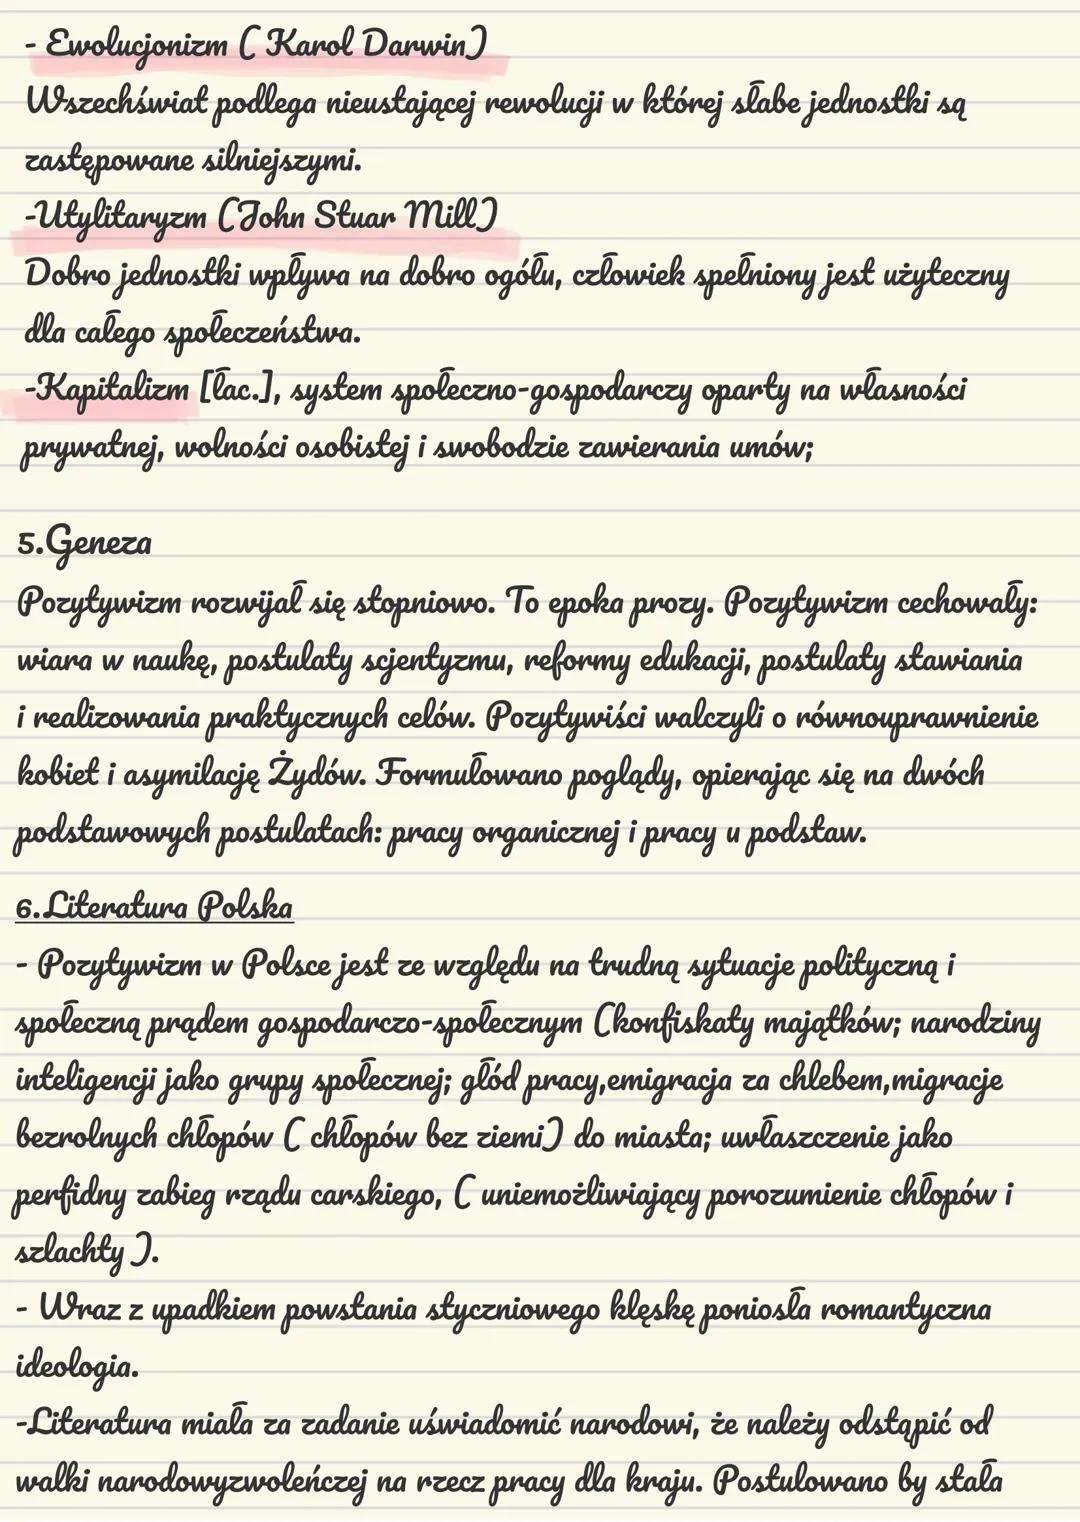 - Ewolucjonizm ( Karol Darwin)
Wszechświat podlega nieustającej rewolucji w której słabe jednostki są
zastępowane silniejszymi.
-Utylitaryzm (John Stuar Mill)
Dobro jednostki wpływa na dobro ogółu, człowiek spełniony jest użyteczny
dla całego społeczeństwa.
-Kapitalizm [łac.], system społeczno-gospodarczy oparty na własności
prywatnej, wolności osobistej i swobodzie zawierania umów;
5.Geneza
Pozytywizm rozwijał się stopniowo. To epoka prozy. Pozytywizm cechowały:
wiara w naukę, postulaty scjentyzmu, reformy edukacji, postulaty stawiania
i realizowania praktycznych celów. Pozytywiści walczyli o równouprawnienie
kobiet i asymilację Żydów. Formułowano poglądy, opierając się na dwóch
podstawowych postulatach: pracy organicznej i pracy u podstaw.
6.Literatura Polska
- Pozytywizm w Polsce jest ze względu na trudną sytuacje polityczną i
społeczną prądem gospodarczo-społecznym (konfiskaty majątków; narodziny
inteligencji jako grupy społecznej; głód pracy,emigracja za chlebem,migracje
bezrolnych chłopów ( chłopów bez ziemi) do miasta; uwłaszczenie jako
perfidny zabieg rządu carskiego, ( uniemożliwiający porozumienie chłopów i
szlachty ).
- Wraz z upadkiem powstania styczniowego klęskę poniosła romantyczna
ideologia.
-Literatura miała za zadanie uświadomić narodowi, że należy odstąpić od
walki narodowyzwoleńczej na rzecz pracy dla kraju. Postulowano by stała